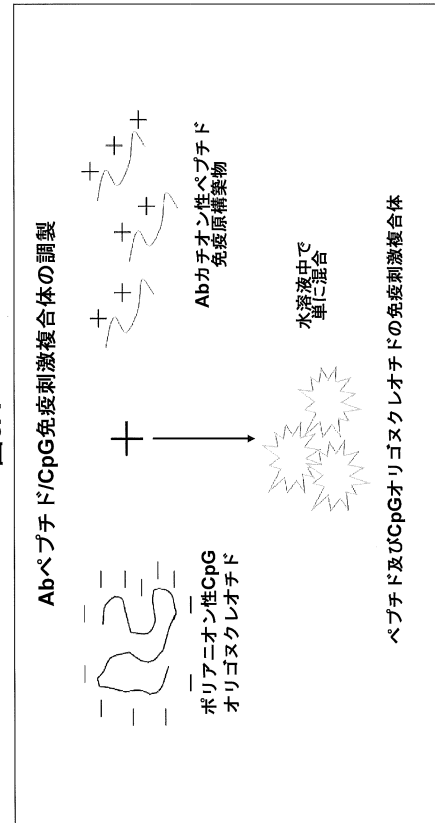 Abペプチド/CpG免疫刺激複合体の調製
ポリアニオン性CpG
オリゴヌクレオチド
+
Abカチオン性ペプチド
免疫原構築物
水溶液中で
単に混合
ペプチド及びCpGオリゴヌクレオチドの免疫刺激複合体